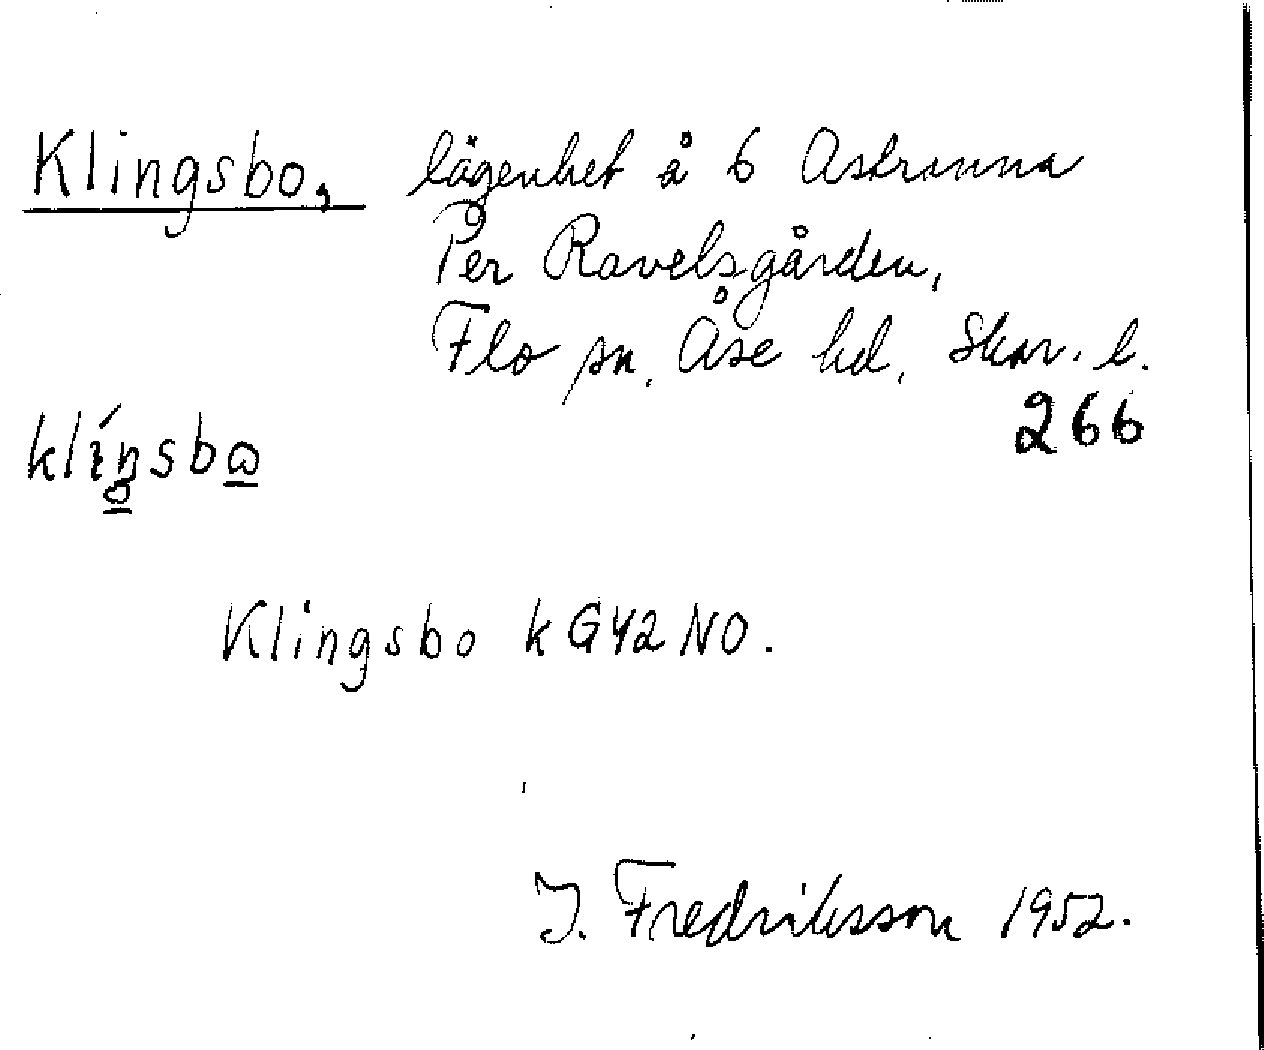 Klingsbo, lägenhet å 6 Astranna
Per Ravelsgården,
Flo sn, Åse hd, Skar. l.
266
klíŋsbɷ
Klingsbo k GY2 NO.
I. Fredriksson 1952.